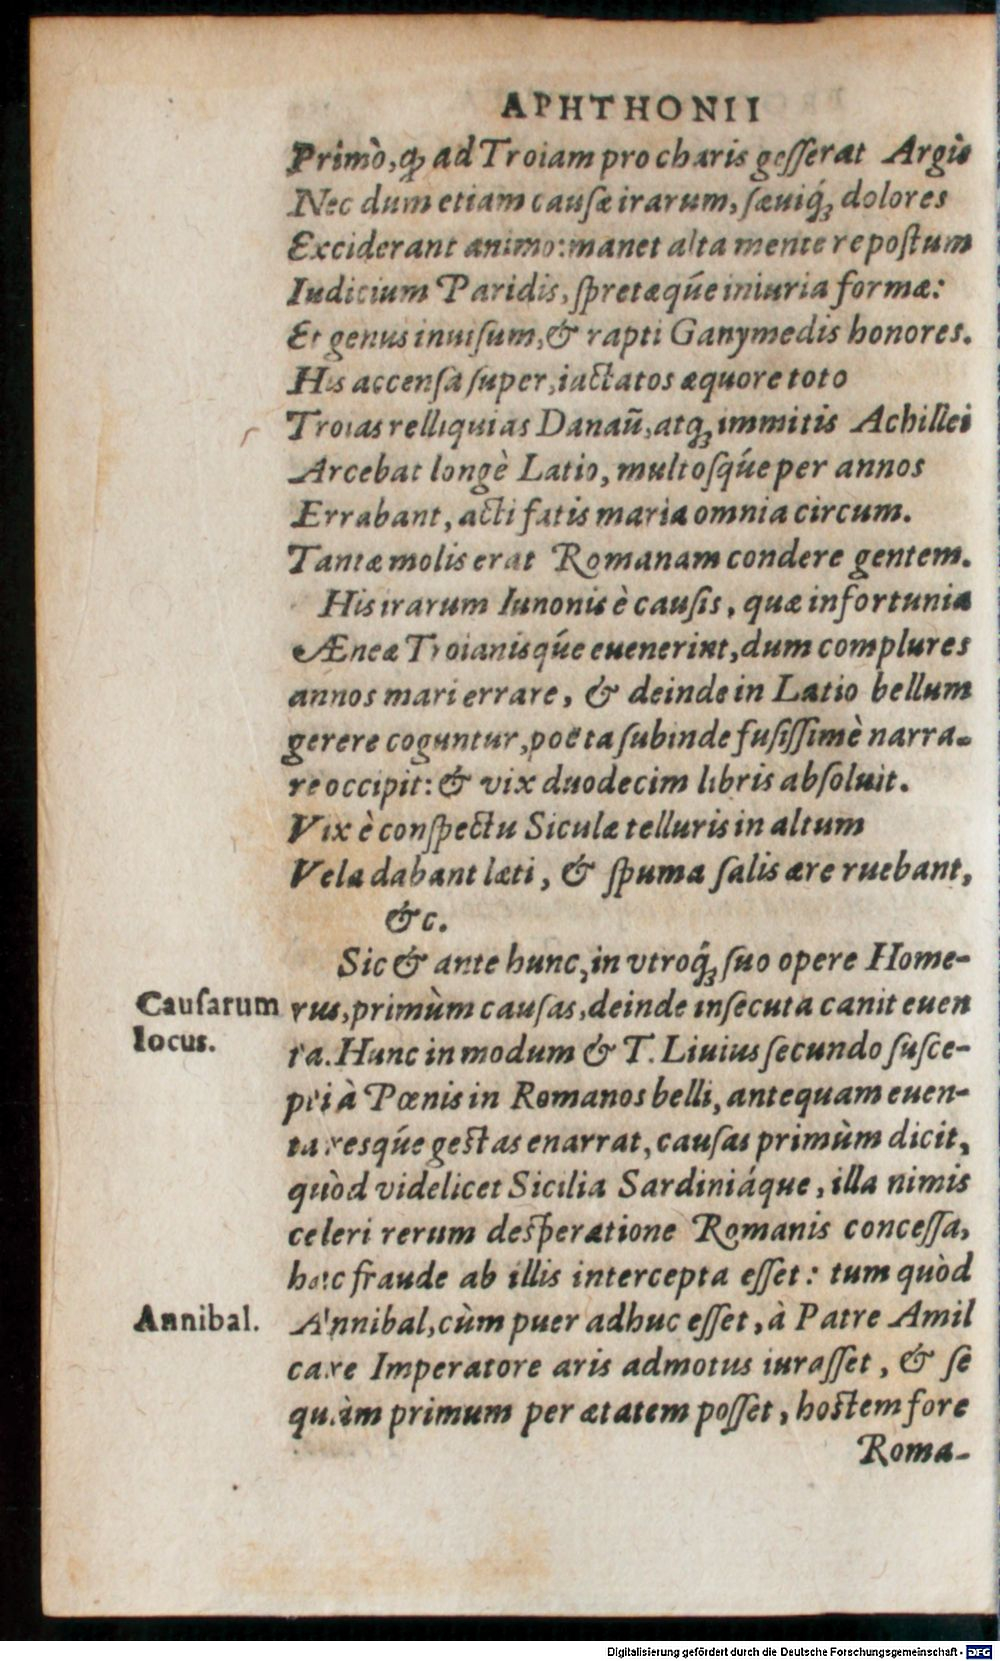 APHTHONII
Primò, ꝙ ad Troiam pro charis geſſerat Argis
Nec dum etiam cauſæ irarum, ſæuiq́ꝫ dolores
Exciderant animo: manet alta mente repoſtum
Iudicium Paridis, ſpretæq́ue iniuria formæ:
Et genus inuiſum, & rapti Ganymedis honores.
His accenſa ſuper, iactatos æquore toto
Troias relliquias Danaũ, atqꝫ immitis Achillei
Arcebat longè Latio, multoſq́ue per annos
Errabant, acti fatis maria omnia circum.
Tantæ molis erat Romanam condere gentem.
His irarum Iunonis è cauſis, quæ infortunia
Æneæ Troianisq́ue euenerint, dum complures
annos mari errare, & deinde in Latio bellum
gerere coguntur, poëta ſubinde fuſiſſimè narra-
re occipit: & vix duodecim libris abſoluit.
Vix è conſpectu Siculæ telluris in altum
Vela dabant læti, & ſpuma ſalis ære ruebant,
&c.
Sic & ante hunc, in vtroq́ꝫ ſuo opere Home-
Cauſarum locus.
rus, primùm cauſas, deinde inſecuta canit euen
ta. Hunc in modum & T. Liuius ſecundo ſuſce-
pti à Pœnis in Romanos belli, antequam euen-
ta resq́ue geſtas enarrat, cauſas primùm dicit,
quòd videlicet Sicilia Sardiniáque, illa nimis
celeri rerum deſperatione Romanis conceſſa,
hæc fraude ab illis intercepta eſſet: tum quòd
Annibal.
Annibal, cùm puer adhuc eſſet, à Patre Amil
care Imperatore aris admotus iuraſſet, & ſe
quàm primum per ætatem poſſet, hoſtem fore
Roma-
Digitalisierung gefördert durch die Deutsche Forschungsgemeinschaft - DFG